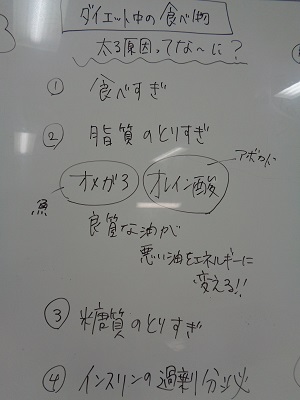 ダイエット中の食べ物
太る原因ってな〜に?
① 食べすぎ
② 脂質のとりすぎ
アボカド
オメガ3 オレイン酸
魚
良質な油が
悪い油をエネルギーに
変える!!
③ 糖質のとりすぎ
④ インスリンの過剰分泌